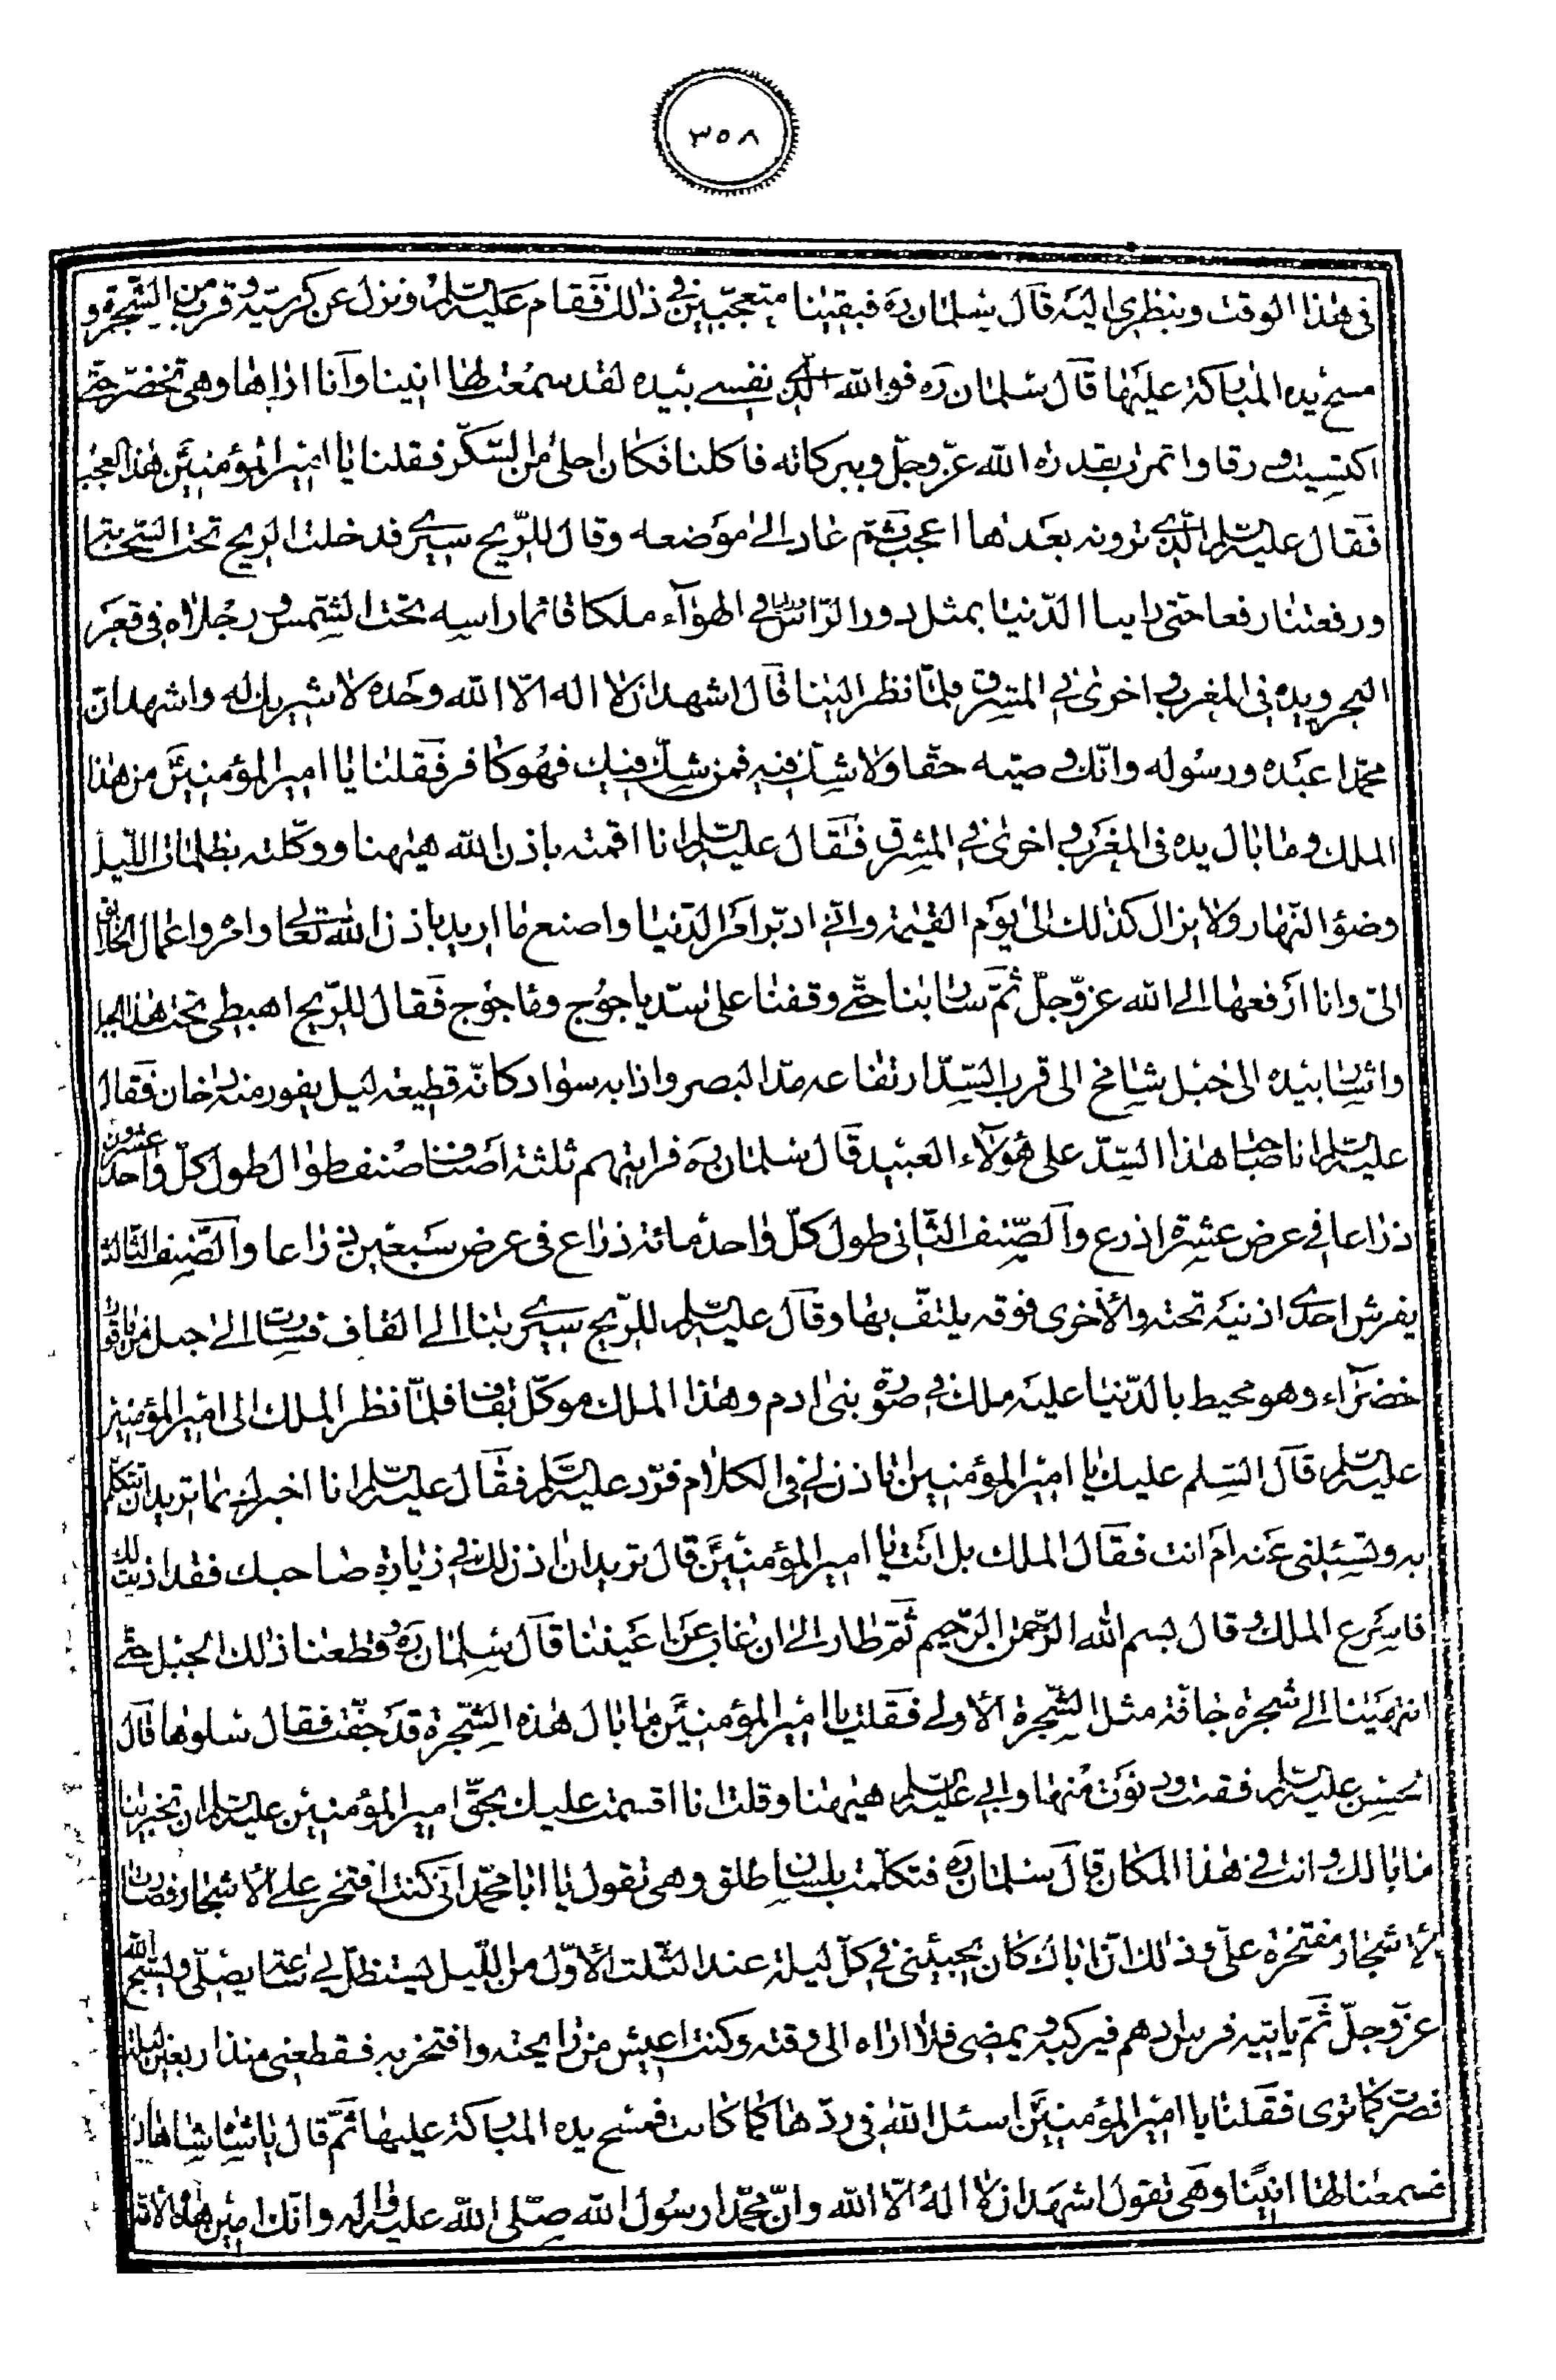 ٣٥٨
في هذا الوقت وينظر الى اليه قال سلمان ره فبقينا متعجبين في ذلك فقام عليه السلم ونزل عن كرسيه وقرب من الشجرة و
مسح يده المباركة عليها قال سلمان ره فو الله الذي نفسي بيده لقد سمعت لها انينا وانا اراها وهي تخضر حتى
اكتسيت ورقا واثمرت بقدرة الله عز وجل وببركاته فاكلنا فكان احلى من السكر فقلنا يا امير المؤمنين هذا العجب
فقال عليه السلم الذي ترونه بعدها اعجب ثم عاد الى موضعه وقال للريح سيري فدخلت الريح تحت السحابتين
ورفعتنا رفعا حتى راينا الدنيا بمثل دور الراس في الهواء ملكا قائما راسه تحت الشمس ورجلاه في قعر
البحر ويده في المغرب واخرى في المشرق فلما نظر الينا قال اشهد ان لا اله الا الله وحده لا شريك له واشهد ان
محمدا عبده ورسوله وانك وصيه حقا ولا شك فيه فمن شك فيك فهو كافر فقلنا يا امير المؤمنين من هذا
الملك وما بال يده في المغرب واخرى في المشرق فقال عليه السلم انا اقمته باذن الله هيهنا ووكلته بظلمات الليل
وضوء النهار ولا يزال كذلك الى يوم القيمة واني ادبر امر الدنيا واصنع ما اريد باذن الله تعالى وامره واعمال الخلايق
الي وانا ارفعها الى الله عز وجل ثم سار بنا حتى وقفنا على سد ياجوج وماجوج فقال للريح اهبطي تحت هذا الجبل
واشار بيده الى جبل شامخ الى قرب السد ارتفاعه مد البصر واذا به سواد كانه قطيعة ليل يفور منه دخان فقال
عليه السلم انا صاحب هذا السد على هؤلاء العبيد قال سلمان ره فرايتهم ثلثة اصناف صنف طوال طول كل واحد عشرون
ذراعا في عرض عشرة اذرع والصنف الثاني طول كل واحد مائة ذراع في عرض سبعين ذراعا والصنف الثالث
يفرش احدى اذنيه تحته والاخرى فوقه يلتف بها وقال عليه السلم للريح سيري بنا الى القاف فسارت الى جبل من ياقوت
خضراء وهو محيط بالدنيا عليه ملك في صورة بني ادم وهذا الملك موكل بقاف فلما نظر الملك الى امير المؤمنين
عليه السلم قال السلم عليك يا امير المؤمنين اتاذن لي في الكلام فرد عليه السلم فقال عليه السلم انا اخبرك بما تريد ان تتكلم
به وتسئلني عنه ام انت فقال الملك بل انت يا امير المؤمنين قال تريد ان اذن لك في زيارة صاحبك فقد اذنت لك
فاسرع الملك وقال بسم الله الرحمن الرحيم ثم طار الى ان غاب عن اعيننا قال سلمان ره وقطعنا ذلك الجبل حتى
انتهينا الى شجرة جافة مثل الشجرة الاولى فقلت يا امير المؤمنين ما بال هذه الشجرة قد جفت فقال سلوها قال
الحسن عليه السلم فقمت ودنوت منها وابي عليه السلم هيهنا وقلت انا اقسمت عليك بحق امير المؤمنين عليه السلم ان تخبرينا
ما بالك وانت في هذا المكان قال سلمان ره فتكلمت بلسان طلق وهي تقول يا ابا محمد اني كنت افتخر على الاشجار فصارت
الاشجار مفتخرة علي وذلك ان اباك كان يجيئني في كل ليلة عند الثلث الاول من الليل يستظل بي ساعة يصلي ويسبح الله
عز وجل ثم ياتيه فرس ادهم فيركبه ويمضي فلا اراه الى وقته وكنت اعيش من رايحته وافتخر به فقطعني منذ اربعين ليلة
فصرت كما ترى فقلنا يا امير المؤمنين اسئل الله في ردها كما كانت فمسح يده المباركة عليها ثم قال
فسمعنا لها انينا وهي تقول اشهد ان لا اله الا الله وان محمدا رسول الله صلى الله عليه واله وانك امين هذه الامة